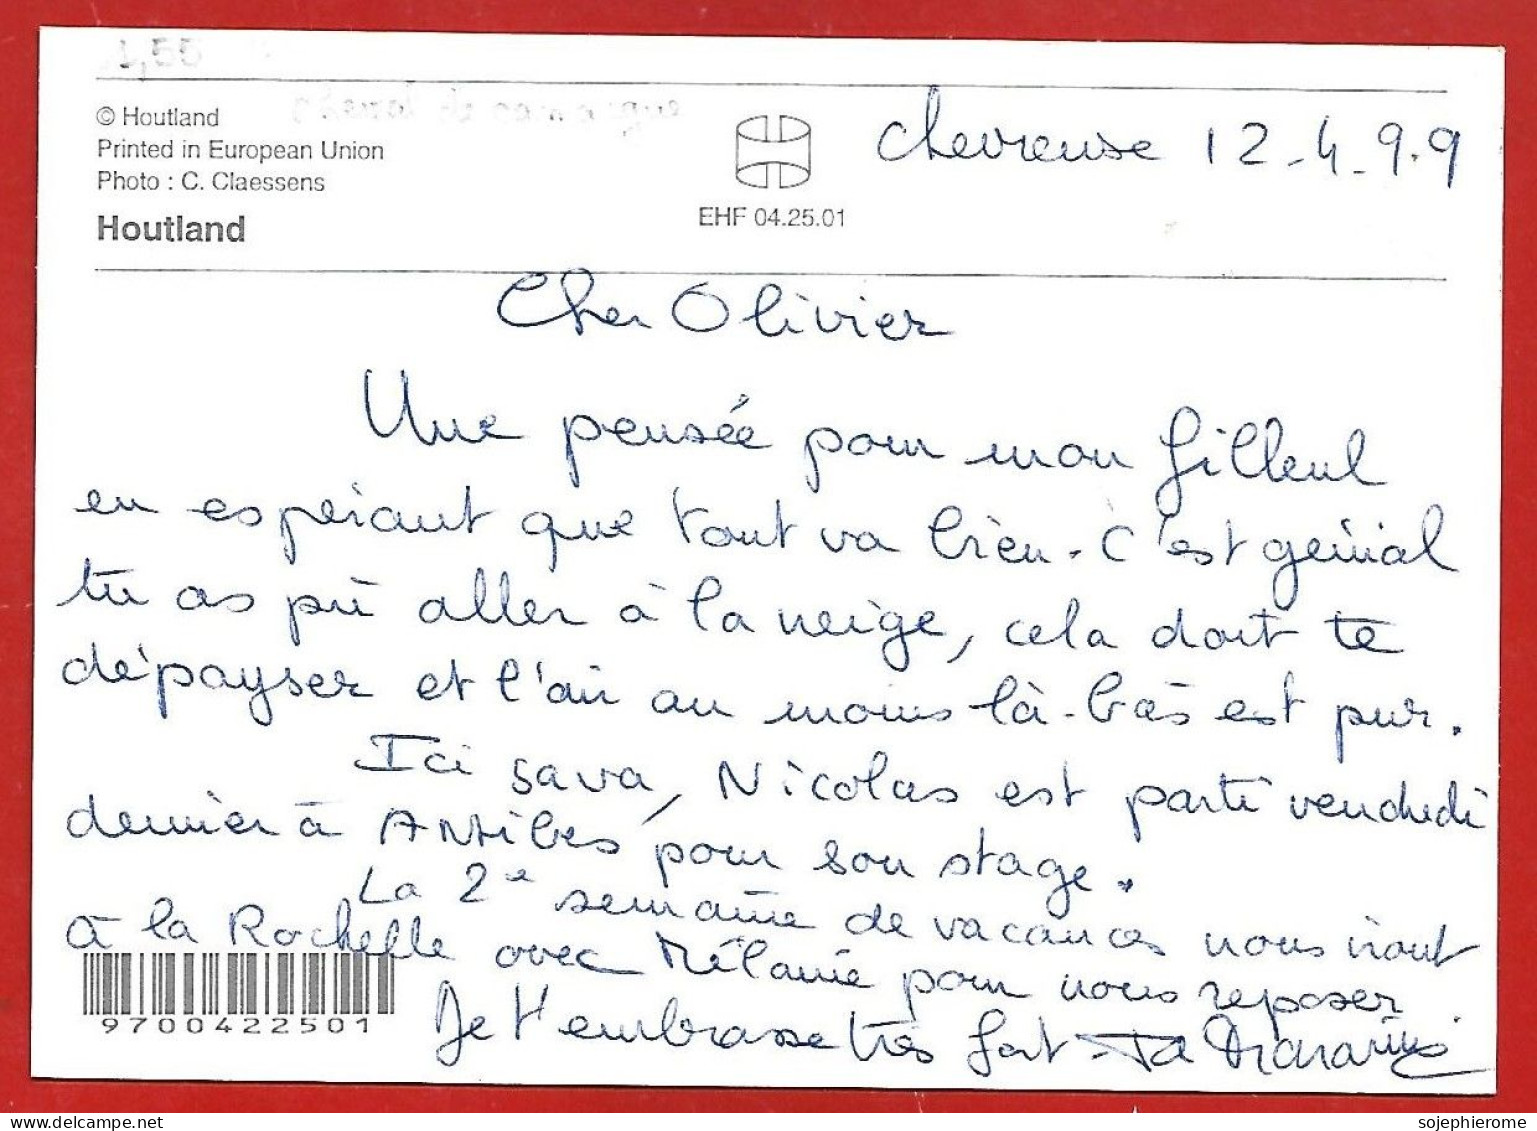 1,55
© Houtland
Printed in European Union
Photo : C. Claessens
Houtland
EHF 04.25.01
Chevreuse 12-4-9.9
Cher Olivier
Une pensée pour mon filleul
en espérant que tout va bien. C'est génial
tu as pû aller à la neige, cela doit te
dépayser et l'air au moins là-bàs est pur.
Ici sava, Nicolas est parti vendredi
dernier à Antibes pour son stage.
La 2e semaine de vacances nous iront
à la Rochelle avec Mélanie pour nous reposer
Je t'embrasse très fort - Ta
9700422501
sojephierome
delcampe.net